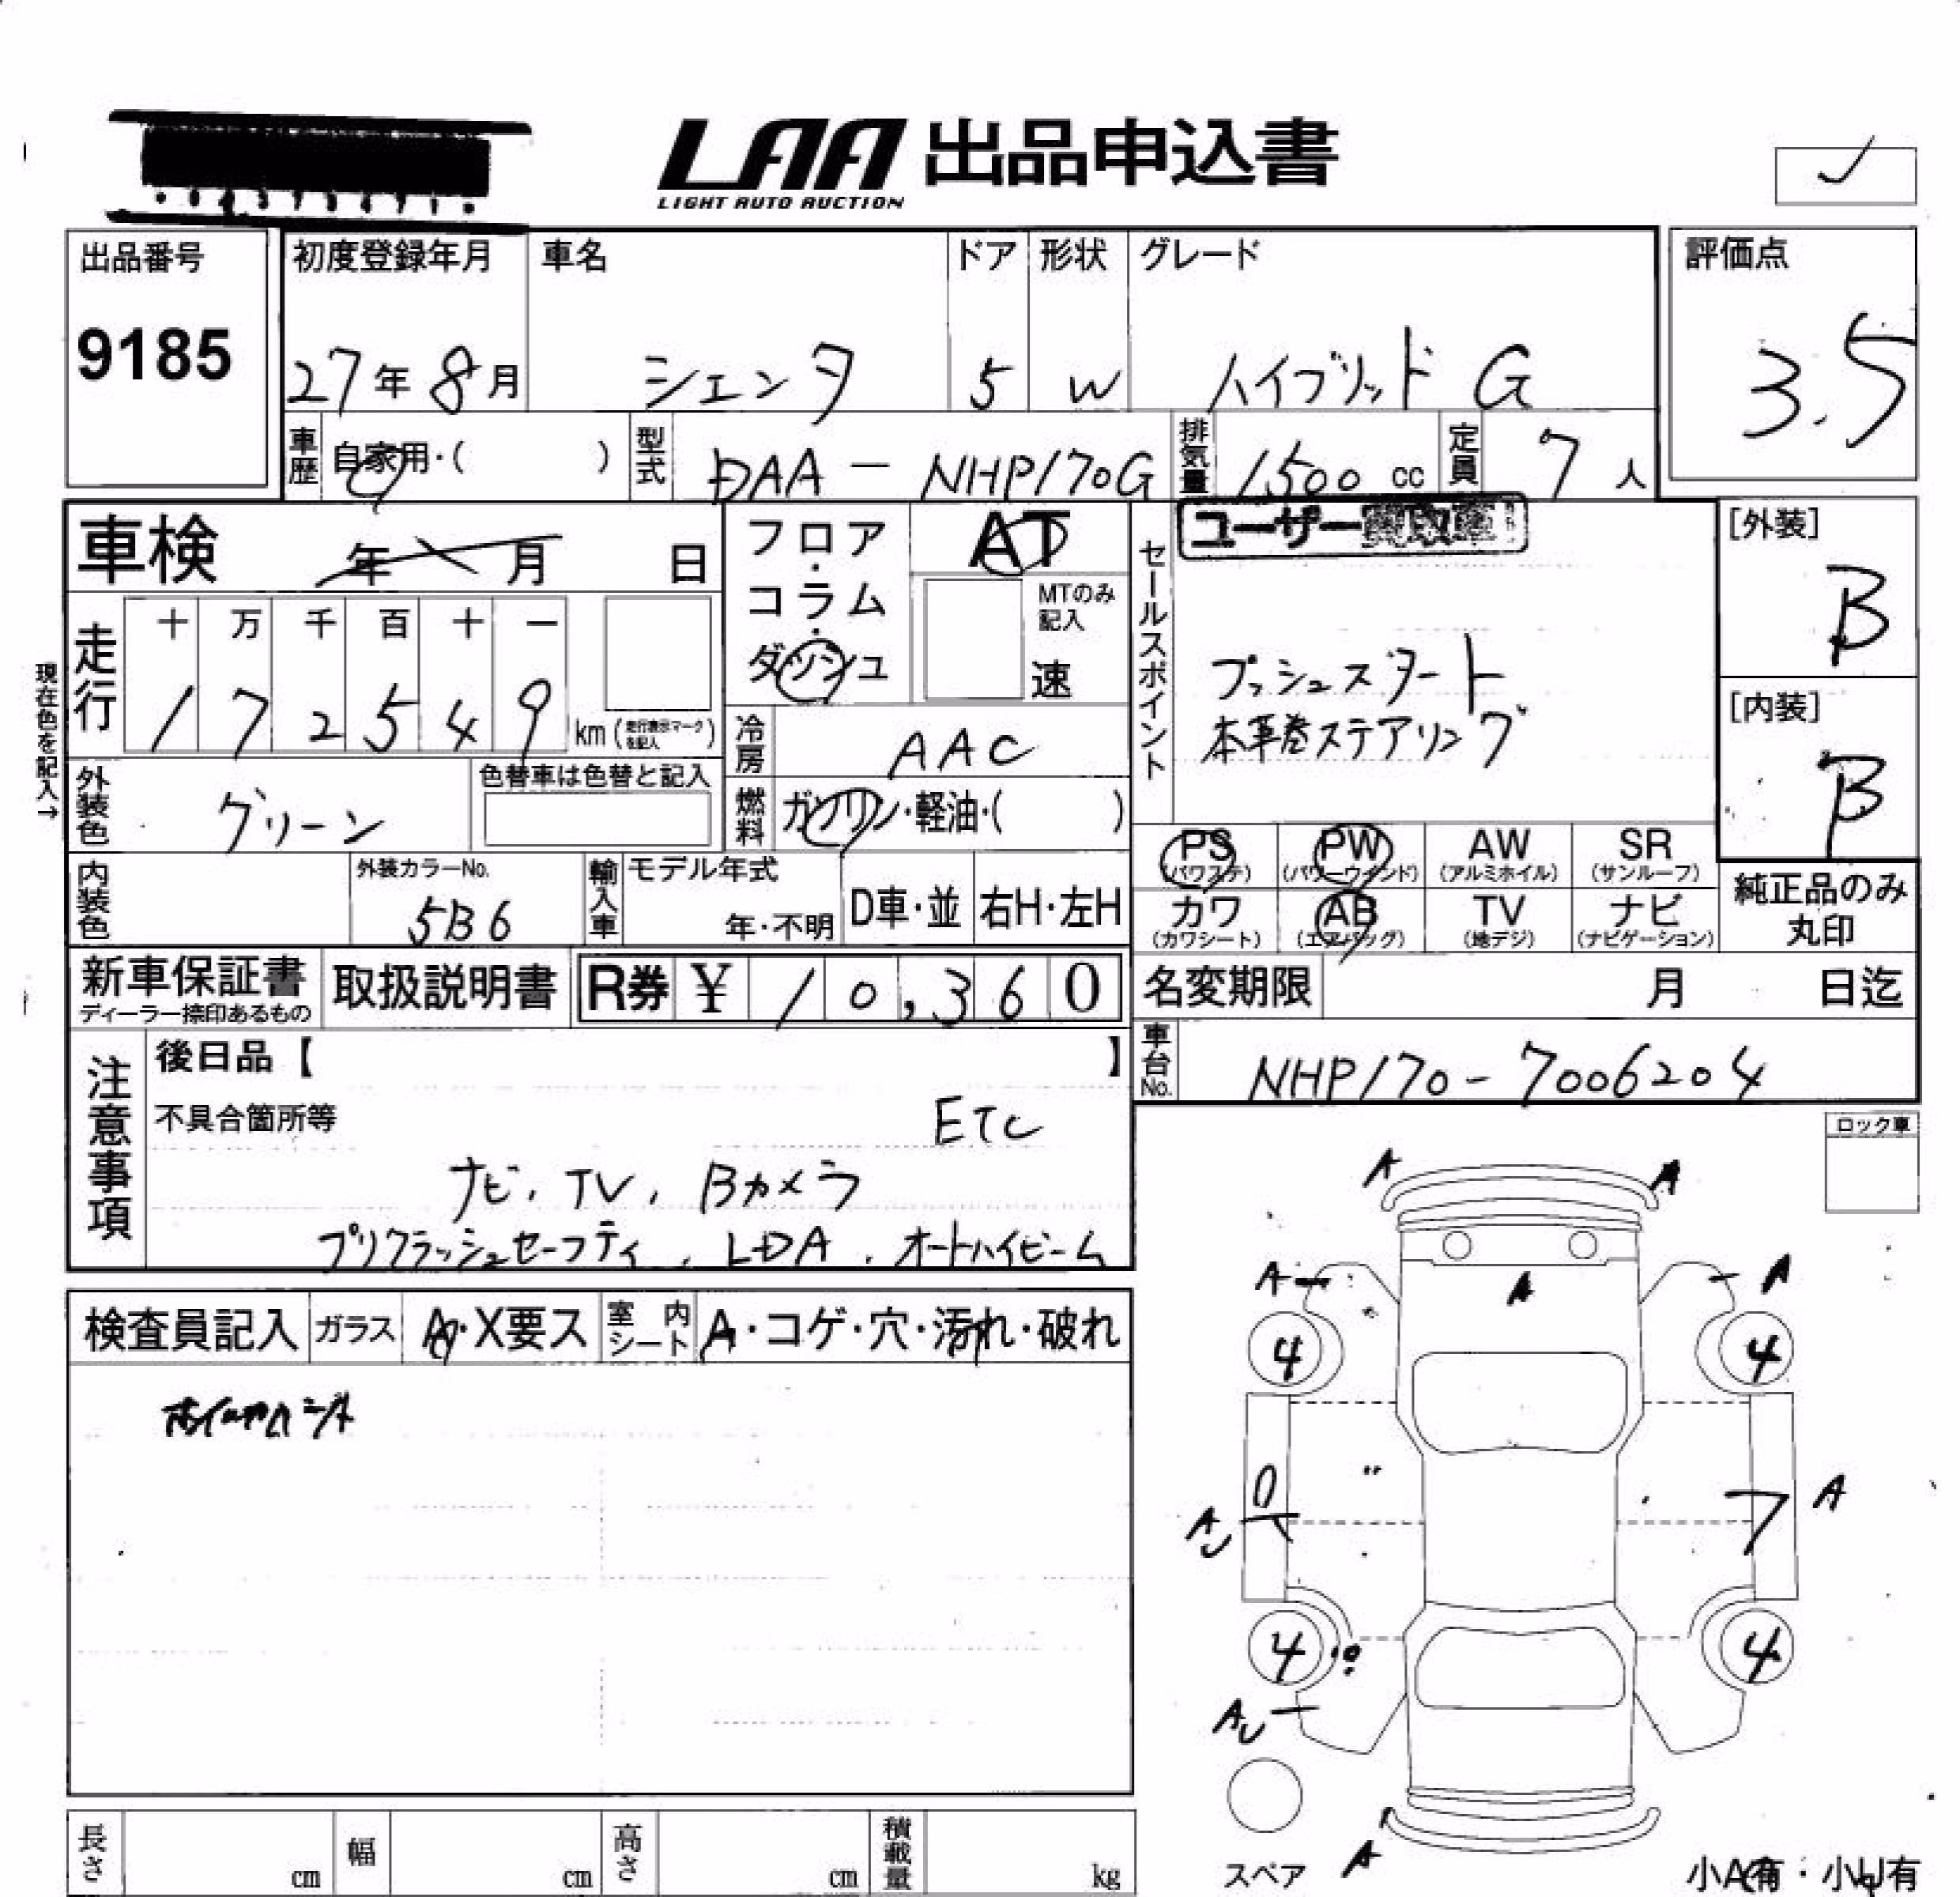 LAA 出品申込書
LIGHT AUTO AUCTION
出品番号
9185
初度登録年月
27年8月
車名
シエンタ
ドア
5
形状
W
グレード
ハイブリッド G
評価点
3.5
車歴
自家用・( )
型式
DAA - NHP170G
排気量
1500 cc
定員
7人
車検 年 月 日
フロア・コラム・ダッシュ
AT
MTのみ記入
速
現在色を記入→
走行
十 万 千 百 十 一
1 7 2 5 4 9 km (走行表示マークを記入)
冷房
AAC
燃料
ガソリン・軽油・( )
外装色
グリーン
色替車は色替と記入
内装色
外装カラーNo.
5B6
輸入車
モデル年式
年・不明
D車・並
右H・左H
セールスポイント
ユーザー買取車
プッシュスタート
本革巻ステアリング
[外装]
B
[内装]
B
PS (パワステ)
PW (パワーウインド)
AW (アルミホイル)
SR (サンルーフ)
カワ (カワシート)
AB (エアバッグ)
TV (地デジ)
ナビ (ナビゲーション)
純正品のみ丸印
新車保証書
ディーラー捺印あるもの
取扱説明書
R券 ¥ 10,360
名変期限 月 日迄
車台No.
NHP170-7006204
注意事項
後日品【 】
不具合箇所等
ETC
ナビ、TV、Bカメラ
プリクラッシュセーフティ、LDA、オートハイビーム
ロック車
検査員記入
ガラス
A・X要ス
室内シート
A・コゲ・穴・汚れ・破れ
A A
A A A
4 4
A
AU
4 4
AU
A
スペア
小A有・小U有
長さ cm
幅 cm
高さ cm
積載量 kg